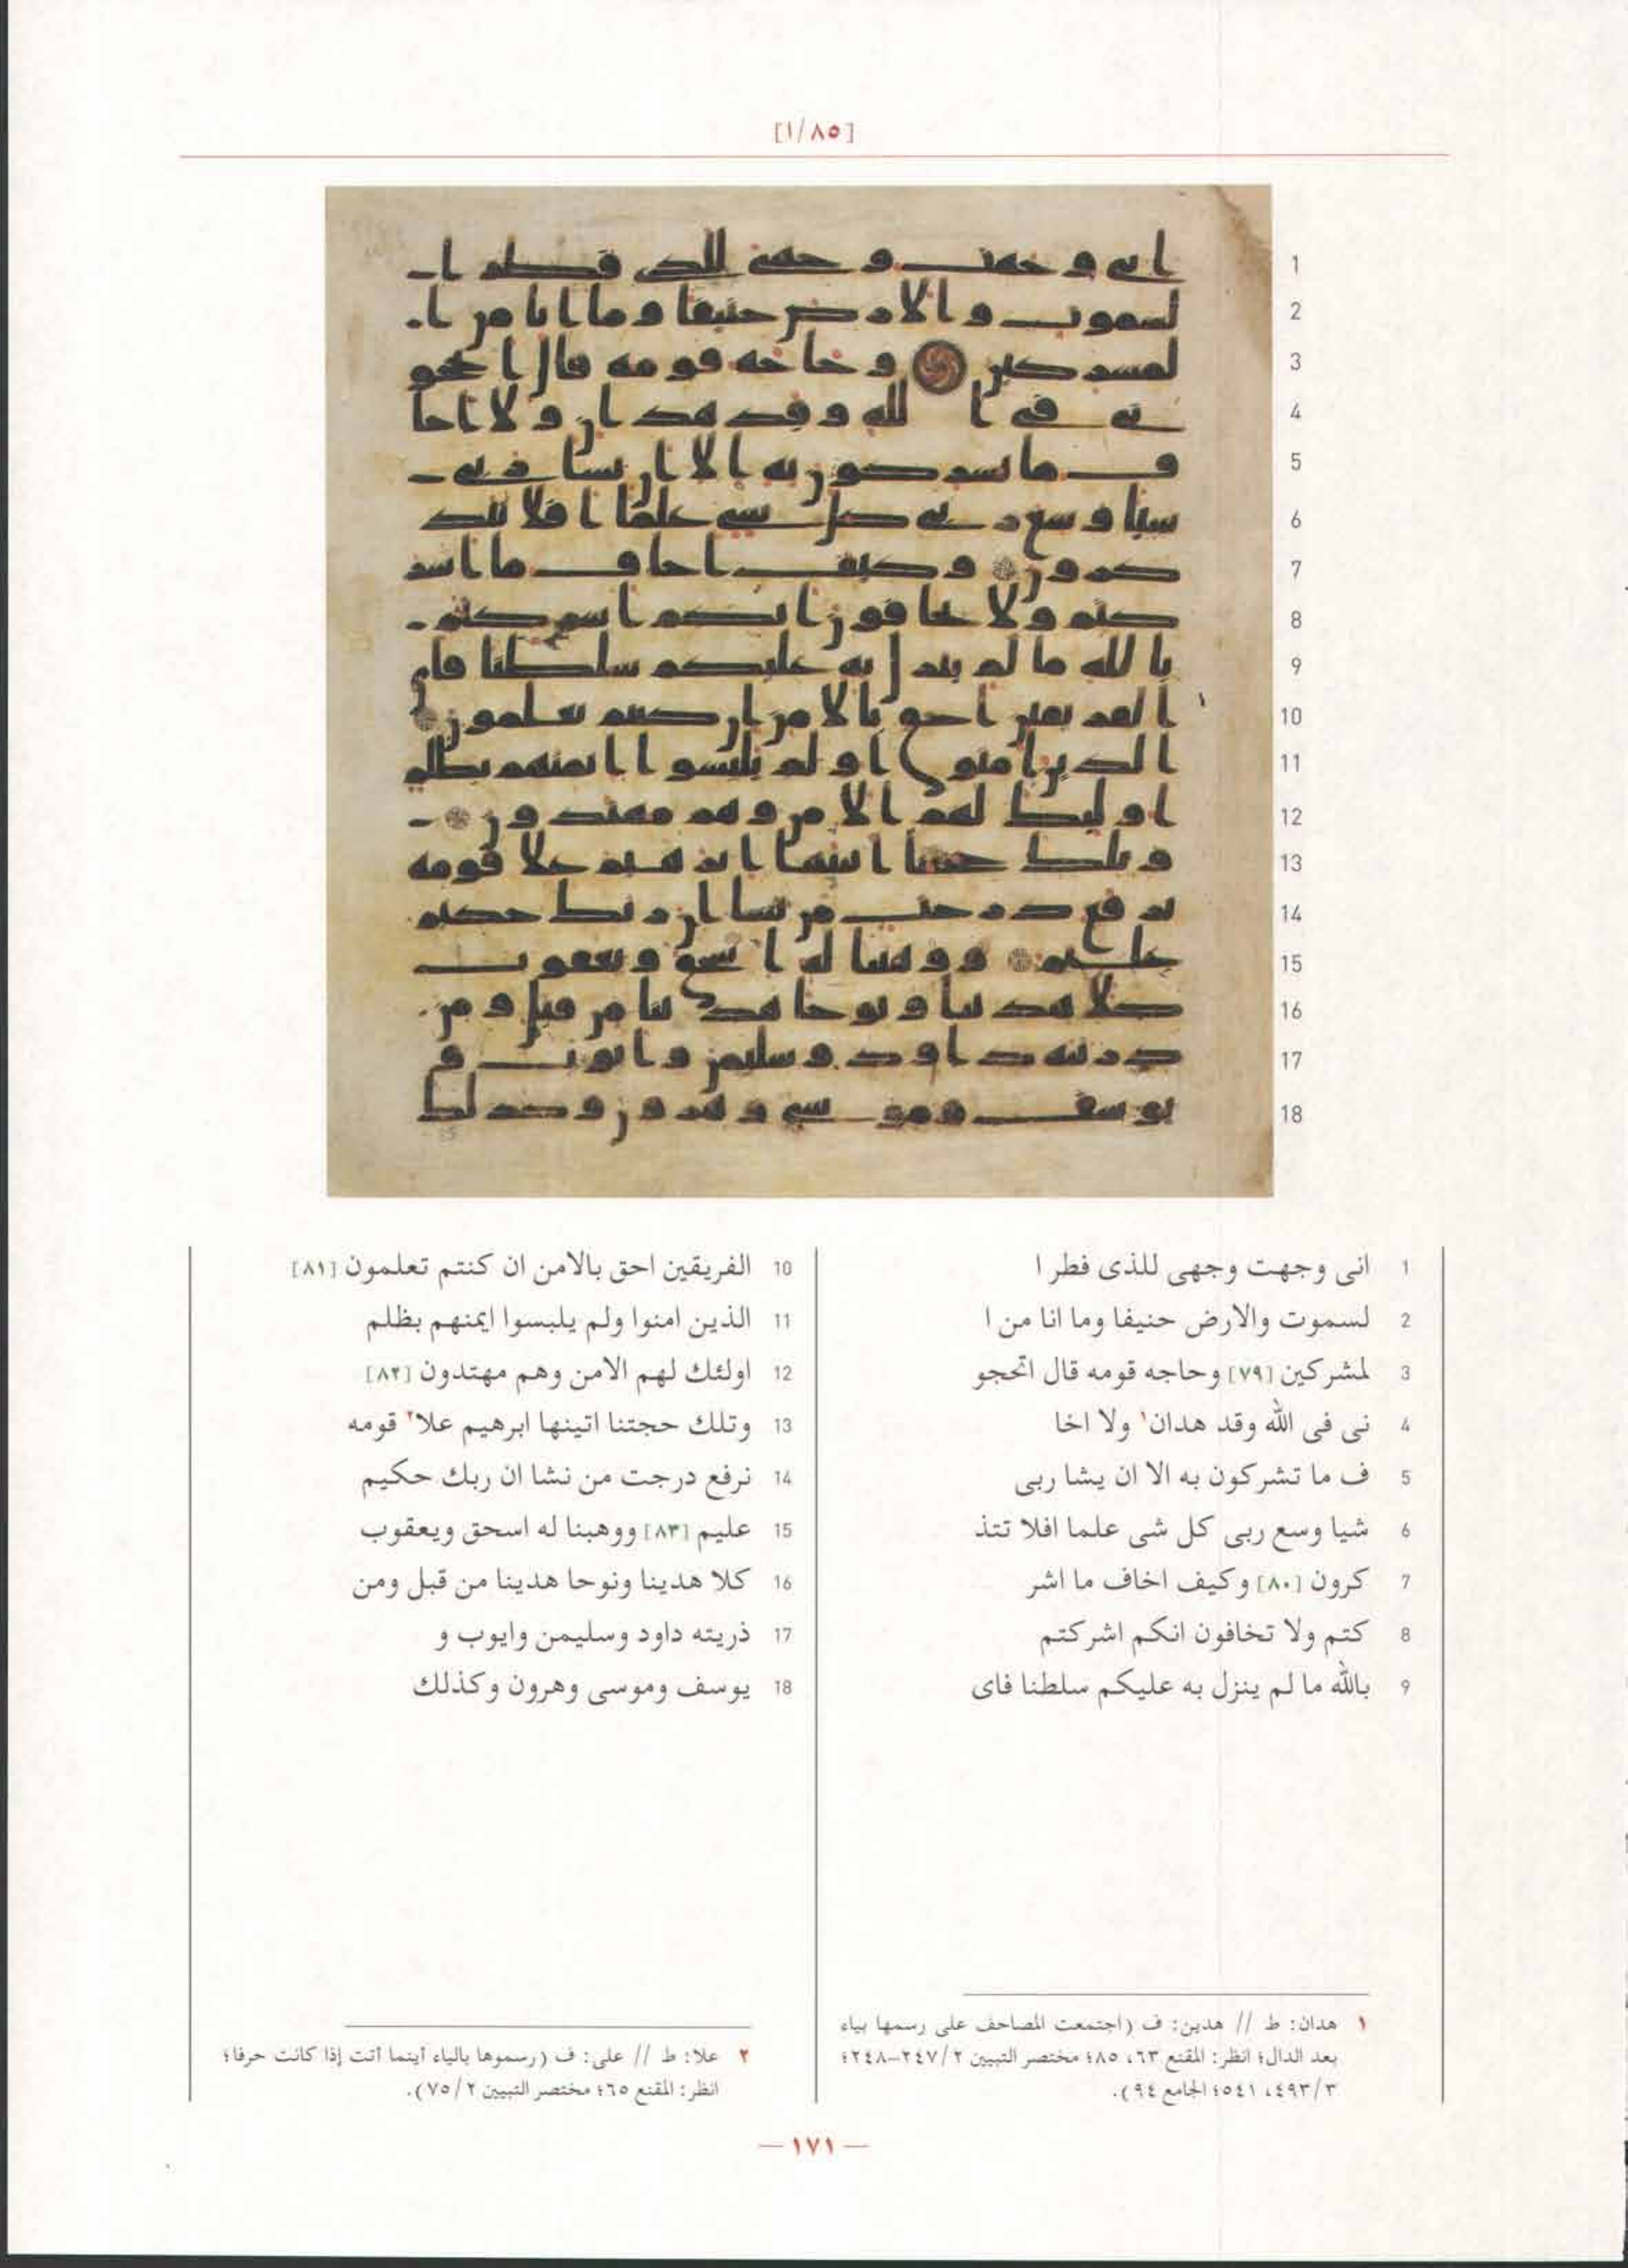 [١/٨٥]
1 انى وجهت وجهى للذى فطر ا
2 لسموت والارض حنيفا وما انا من ا
3 لمشركين [٧٩] وحاجه قومه قال اتحجو
4 نى فى الله وقد هدان١ ولا اخا
5 ف ما تشركون به الا ان يشا ربى
6 شيا وسع ربى كل شى علما افلا تتذ
7 كرون [٨٠] وكيف اخاف ما اشر
8 كتم ولا تخافون انكم اشركتم
9 بالله ما لم ينزل به عليكم سلطنا فاى
10 الفريقين احق بالامن ان كنتم تعلمون [٨١]
11 الذين امنوا ولم يلبسوا ايمنهم بظلم
12 اولئك لهم الامن وهم مهتدون [٨٢]
13 وتلك حجتنا اتينها ابرهيم علا٢ قومه
14 نرفع درجت من نشا ان ربك حكيم
15 عليم [٨٣] ووهبنا له اسحق ويعقوب
16 كلا هدينا ونوحا هدينا من قبل ومن
17 ذريته داود وسليمن وايوب و
18 يوسف وموسى وهرون وكذلك
١ هدان: ط // هدين: ف (اجتمعت المصاحف على رسمها بياء
بعد الدال؛ انظر: المقنع ٦٣، ٨٥؛ مختصر التبيين ٢/ ٢٤٧–٢٤٨؛
٣/ ٤٩٣، ٥٤١؛ الجامع ٩٤).
٢ علا: ط // على: ف (رسموها بالياء أينما أتت إذا كانت حرفا؛
انظر: المقنع ٦٥؛ مختصر التبيين ٢/ ٧٥).
— ١٧١ —